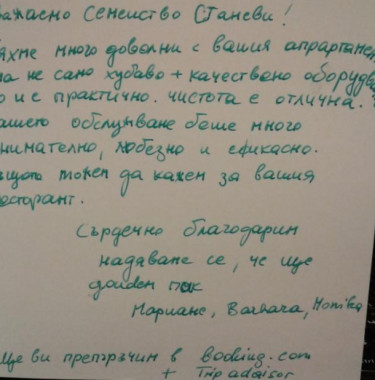 важаемо Семейство Станеви!
яхме много доволни с вашия апрартамен
а не само хубаво + качествено оборудва
о и с практично. чистота е отлична.
ашето обслужване беше много
нимателно, любезно и ефикасно.
ъщото можем да кажем за вашия
есторант.
Сърдечно благодарим
надаваме се, че ще
дойдем пак
Мариане, Barbara, Monika
Ще ви препоръчим в Booking.com
+ Trip advisor